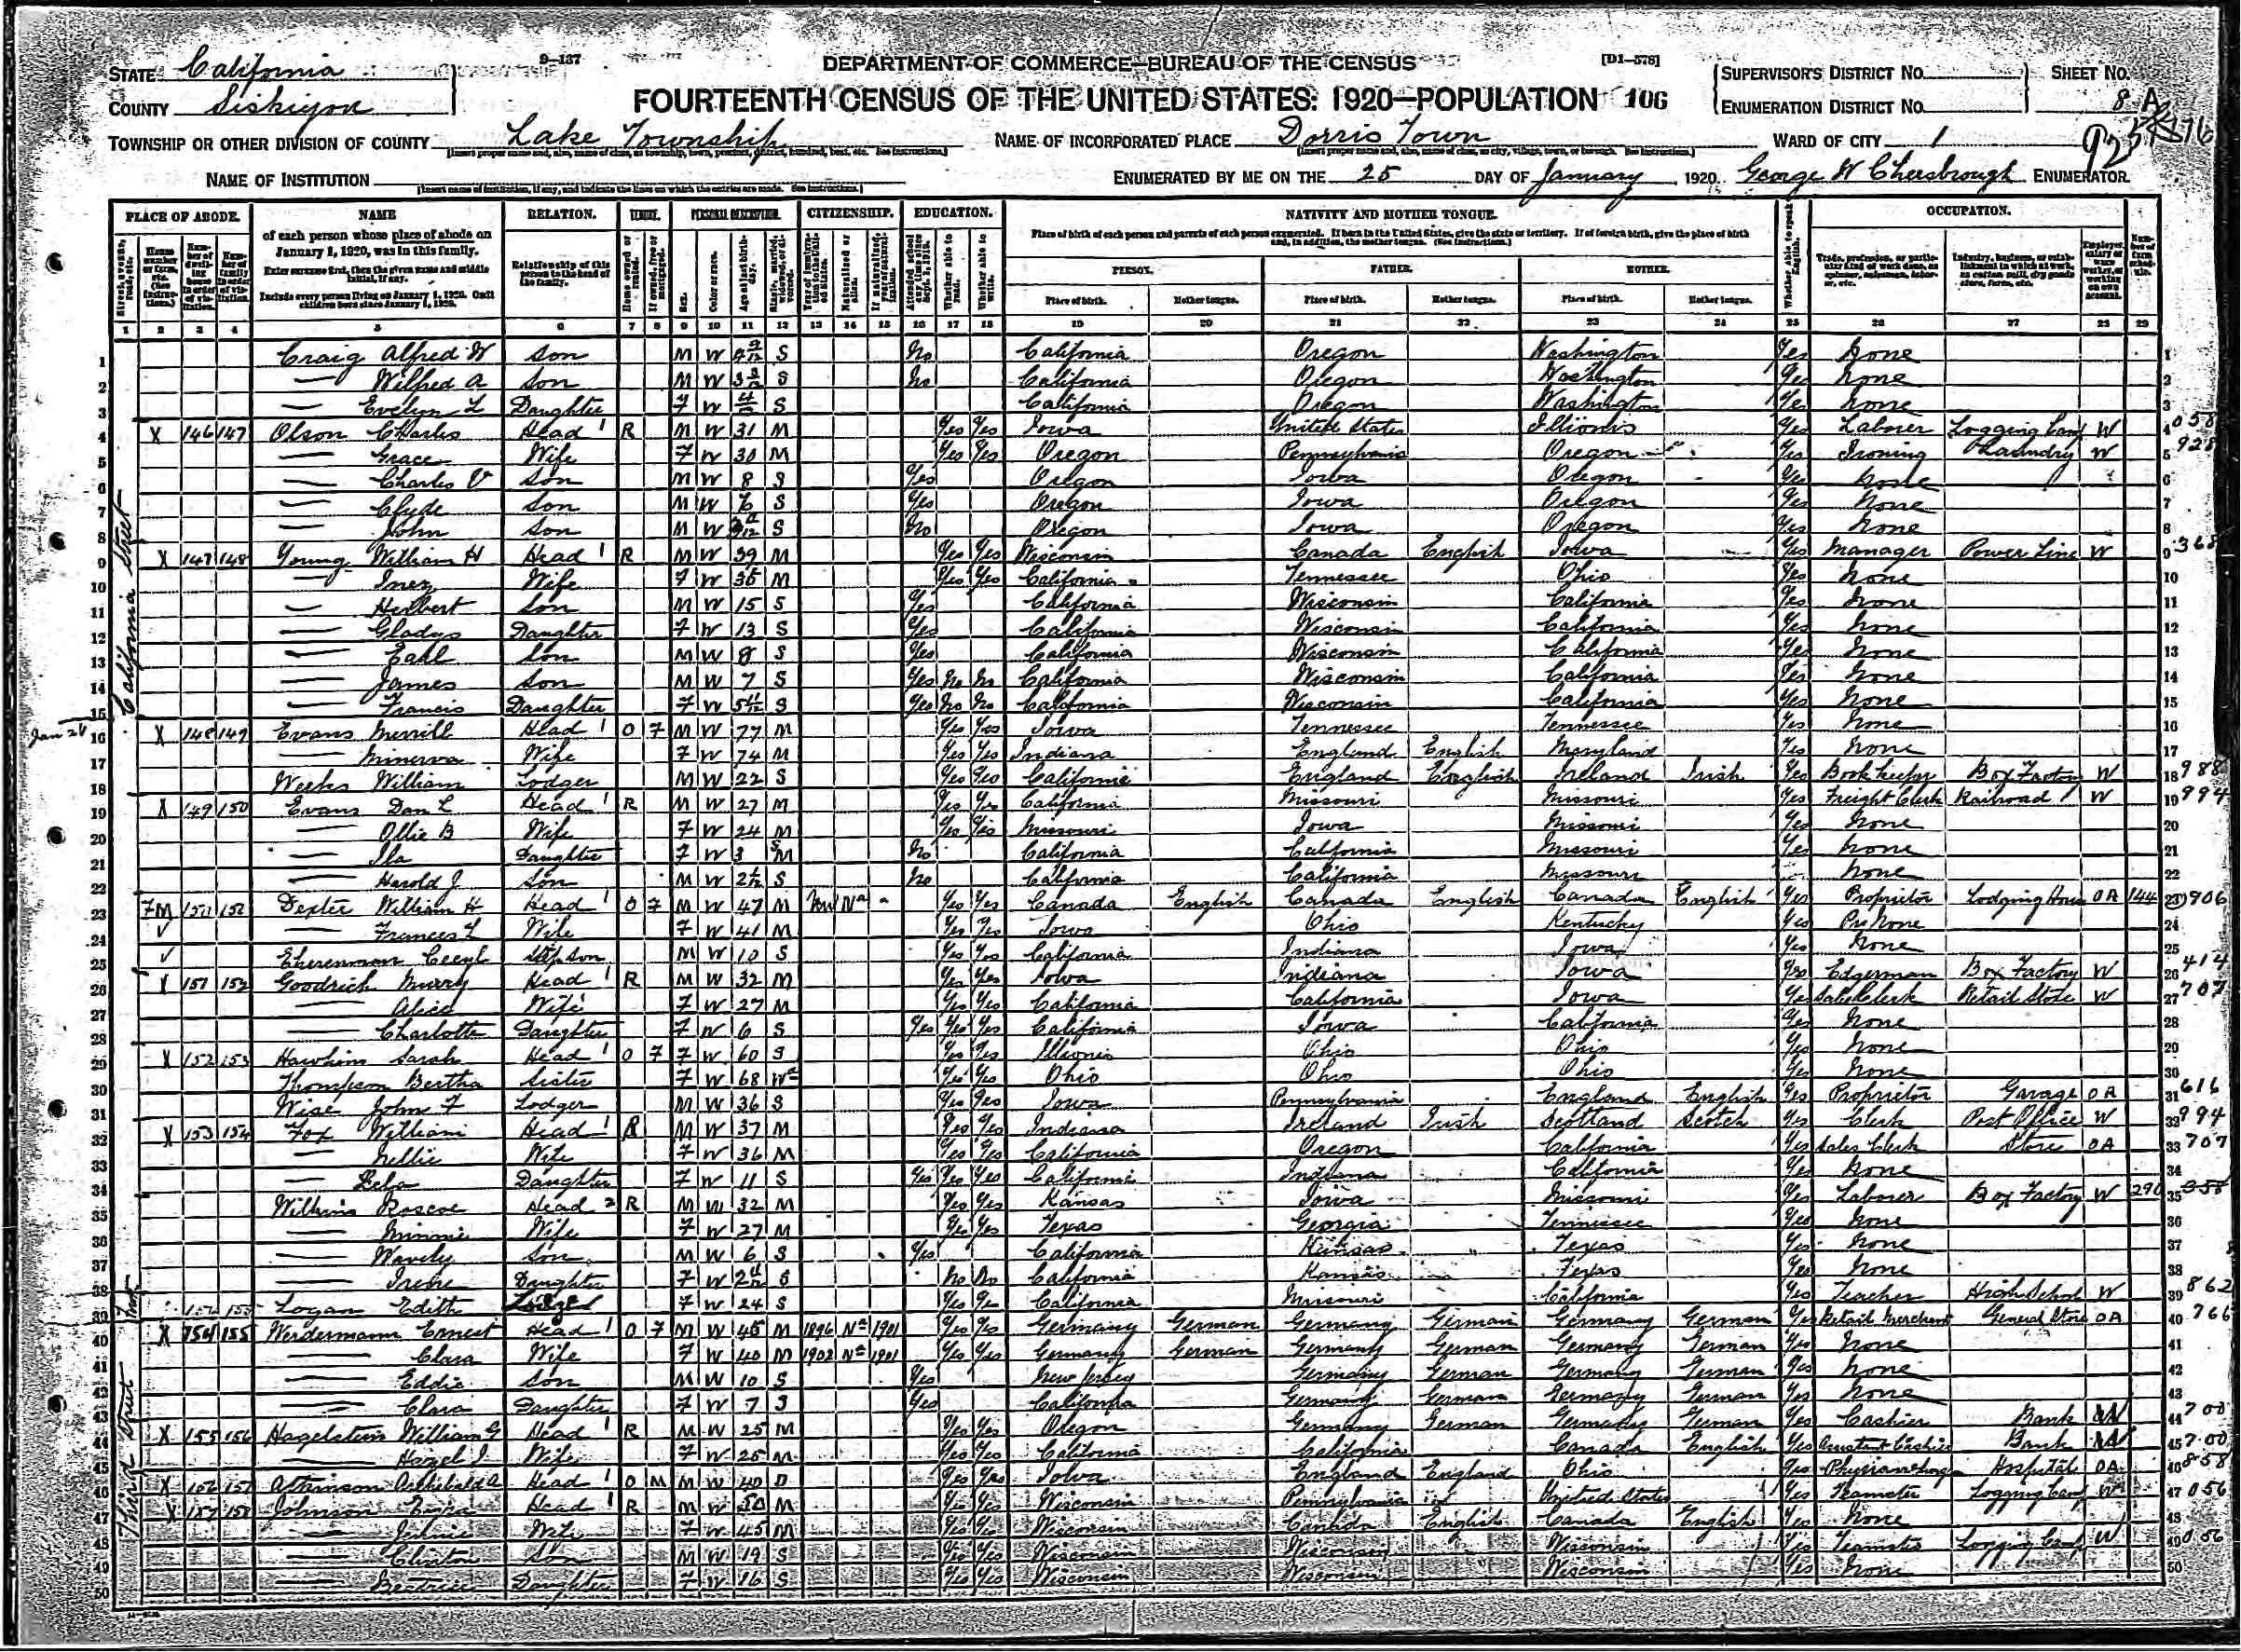 9-137
DEPARTMENT OF COMMERCE—BUREAU OF THE CENSUS
[D1-578]
STATE California
COUNTY Siskiyou
FOURTEENTH CENSUS OF THE UNITED STATES: 1920—POPULATION 106
SUPERVISOR'S DISTRICT No.
ENUMERATION DISTRICT No.
SHEET No.
8 A
TOWNSHIP OR OTHER DIVISION OF COUNTY Lake Township
NAME OF INCORPORATED PLACE Dorris Town
WARD OF CITY 1
NAME OF INSTITUTION
ENUMERATED BY ME ON THE 25 DAY OF January, 1920. George W Cheesbrough ENUMERATOR
PLACE OF ABODE. NAME RELATION. CITIZENSHIP. EDUCATION. NATIVITY AND MOTHER TONGUE. OCCUPATION.
of each person whose place of abode on January 1, 1920, was in this family.
Enter surname first, then the given name and middle initial, if any.
Include every person living on January 1, 1920. Omit children born since January 1, 1920.
Relationship of this person to the head of the family.
Place of birth of each person and parents of each person enumerated. If born in the United States, give the state or territory. If of foreign birth, give the place of birth and, in addition, the mother tongue. (See Instructions.)
PERSON. FATHER. MOTHER.
Place of birth. Mother tongue. Place of birth. Mother tongue. Place of birth. Mother tongue.
1 2 3 4 5 6 7 8 9 10 11 12 13 14 15 16 17 18 19 20 21 22 23 24 25 26 27 28 29
California Street
Third Street
1 Craig Alfred W Son M W 4 9/12 S No California Oregon Washington Yes None
2 — Wilfred A Son M W 3 S No California Oregon Washington Yes None
3 — Evelyn L Daughter F W 4/12 S California Oregon Washington Yes None
4 X 146 147 Olson Charles Head 1 R M W 31 M Yes Yes Iowa United States Illionis Yes Laborer Logging Camp W 058
5 — Grace Wife F W 30 M Yes Yes Oregon Pennsylvania Oregon Yes Ironing Laundry W 928
6 — Charles V Son M W 8 S Yes Oregon Iowa Oregon Yes None
7 — Clyde Son M W 6 S Yes Oregon Iowa Oregon Yes None
8 — John Son M W S No Oregon Iowa Oregon Yes None
9 X 147 148 Young William H Head 1 R M W 39 M Yes Yes Wisconsin Canada English Iowa Yes Manager Power Line W 368
10 — Inez Wife F W 35 M Yes Yes California Tennessee Ohio Yes None
11 — Herbert Son M W 15 S Yes California Wisconsin California Yes None
12 — Gladys Daughter F W 13 S Yes California Wisconsin California Yes None
13 — Earl Son M W 8 S Yes California Wisconsin California Yes None
14 — James Son M W 7 S Yes No No California Wisconsin California Yes None
15 — Francis Daughter F W 5 11/12 S Yes No No California Wisconsin California Yes None
16 X 148 149 Evans Merrill Head 1 O F M W 77 M Yes Yes Iowa Tennessee Tennessee Yes None
17 — Minerva Wife F W 74 M Yes Yes Indiana England English Maryland Yes None
18 Weeks William Lodger M W 22 S Yes Yes California England English Ireland Irish Yes Book keeper Box Factory W 988
19 X 149 150 Evans Dan L Head 1 R M W 27 M Yes Yes California Missouri Missouri Yes Freight Clerk Railroad W 994
20 — Ollie B Wife F W 24 M Yes Yes Missouri Iowa Missouri Yes None
21 — Ila Daughter F W 3 S No California California Missouri Yes None
22 — Harold J Son M W 2 S No California California Missouri None
23 FM 150 151 Dexter William H Head 1 O F M W 47 M Na Yes Yes Canada English Canada English Canada English Yes Proprietor Lodging House OA 144 906
24 — Frances L Wife F W 41 M Yes Yes Iowa Ohio Kentucky Yes None
25 Cecyl Step son M W 10 S Yes Yes California Indiana Iowa Yes None
26 X 151 152 Goodrich Murry Head 1 R M W 32 M Yes Yes Iowa Indiana Iowa Yes Edgerman Box Factory W 414
27 — Alice Wife F W 27 M Yes Yes California California Iowa Yes Sales Clerk Retail Store W 707
28 — Charlotte Daughter F W 6 S Yes Yes Yes California Iowa California Yes None
29 X 152 153 Hawkins Sarah Head 1 O F F W 60 S Yes Yes Illionis Ohio Ohio Yes None
30 Thompson Bertha Sister F W 68 Wd Yes Yes Ohio Ohio Ohio Yes None
31 Wise John F Lodger M W 36 S Yes Yes Iowa Pennsylvania England English Yes Proprietor Garage OA 616
32 X 153 154 Fox William Head 1 R M W 37 M Yes Yes Indiana Ireland Irish Scotland Scotch Yes Clerk Post Office W 994
33 — Nellie Wife F W 36 M Yes Yes California Oregon California Yes Sales Clerk Store OA 707
34 — Daughter F W 11 S Yes Yes Yes California Indiana California Yes None
35 Wilkins Roscoe Head 2 R M W 32 M Yes Yes Kansas Iowa Missouri Yes Laborer Box Factory W 290
36 — Minnie Wife F W 27 M Yes Yes Texas Georgia Tennessee Yes None
37 — Waverly Son M W 6 S Yes California Kansas Texas Yes None
38 — Irene Daughter F W 2 S No No California Kansas Texas Yes None
39 Logan Edith F W 24 S Yes Yes California Missouri California Yes Teacher High School W 862
40 X 154 155 Werdermann Ernest Head 1 O F M W 45 M 1896 Na 1901 Yes Yes Germany German Germany German Germany German Yes Retail Merchant General Store OA 766
41 — Clara Wife F W 40 M 1902 Na 1901 Yes Yes Germany German Germany German Germany German Yes None
42 — Eddie Son M W 10 S Yes New Jersey Germany German Germany German Yes None
43 — Clara Daughter F W 7 S Yes California Germany German Germany German Yes None
44 X 155 156 Hagelstein William G Head 1 R M W 25 M Yes Yes Oregon Germany German Germany German Yes Cashier Bank 700
45 — Hazel I Wife F W 25 M Yes Yes California California Canada English Yes Bank 700
46 X 156 157 Atkinson Archibald A Head 1 O M M W 40 D Yes Yes Iowa England England Ohio Yes Hospital OA 858
47 X 157 158 Johnson Head 1 R M W 50 M Yes Yes Wisconsin Pennsylvania United States Yes Teamster Logging Camp W 056
48 — Wife F W 45 M Yes Yes Wisconsin Canada English Canada English Yes None
49 — Clinton Son M W 19 S Yes Yes Wisconsin Wisconsin Wisconsin Yes Teamster Logging Camp W 056
50 — Beatrice Daughter F W 16 S Yes Yes Wisconsin Wisconsin Wisconsin Yes None